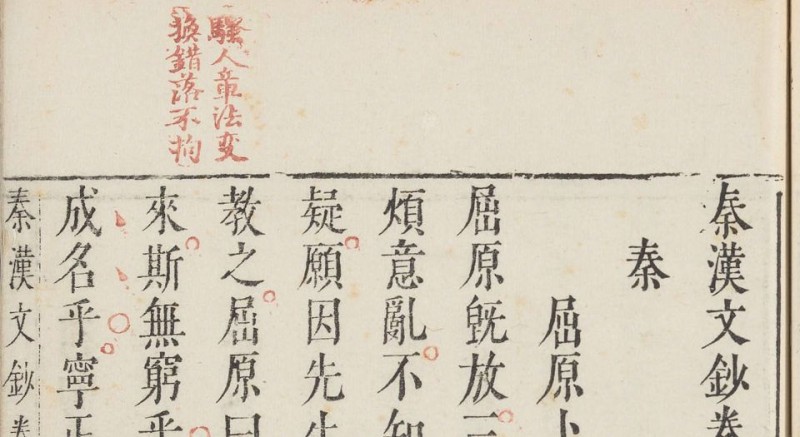 騷人章法變
換錯落不拘
秦漢文鈔卷
秦
屈原卜
屈原既放三
煩意亂不知
疑願因先生
教之屈原曰
來斯無窮乎
成名乎寧正
秦漢文鈔卷